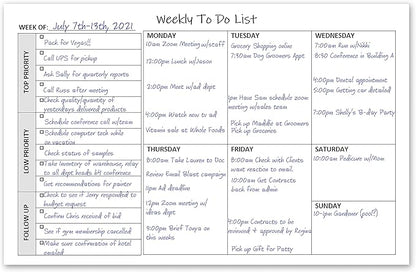 Weekly To Do List
WEEK OF: July 7th-13th, 2021
TOP PRIORITY
Pack for Vegas!!
Call UPS for pickup
Ask Sally for quarterly reports
Call Russ after meeting
Check quality/quantity of
yesterdays delivered products
LOW PRIORITY
Schedule conference call w/team
Schedule computer tech while
on vacation
Check status of samples
Take inventory of warehouse, relay
to all dept heads at conference
Get recommendations for painter
FOLLOW UP
Check to see if Jerry responded to
budget request
Confirm Chris received of bid
See if gym membership cancelled
Make sure confirmation of hotel
emailed
MONDAY
10am Zoom Meeting w/staff
12:00pm Lunch w/Jason
2:00pm Meet w/ad dept
4:00pm Watch new to ad
Vitamin sale at Whole Foods
TUESDAY
Grocery Shopping online
7:30am Dog Groomers Appt
1pm Have Sam schedule zoom
meeting w/sales team
Pick up Maddie at Groomers
Pick up Groceries
WEDNESDAY
7:00am Run w/Nikki
8:30 Conference in Building A
4:00pm Dental appointment
5:00pm Getting car detailed
7:00pm Shelly's B-day Party
THURSDAY
8:00am Take Lauren to Doc
Review Email Blast campaign
5pm Ad deadline
12pm Zoom meeting w/
ideas dept
9:00pm Brief Tonya on
this weeks
FRIDAY
8:00am Check with Clients
want reaction to email
10:00am Get Contracts
back from admin
4:00pm Contracts to be
reviewed + approved by Regina
Pick up Gift for Patty
SATURDAY
10:00am Pedicure w/Mom
SUNDAY
10-1pm Gardener (pool?)